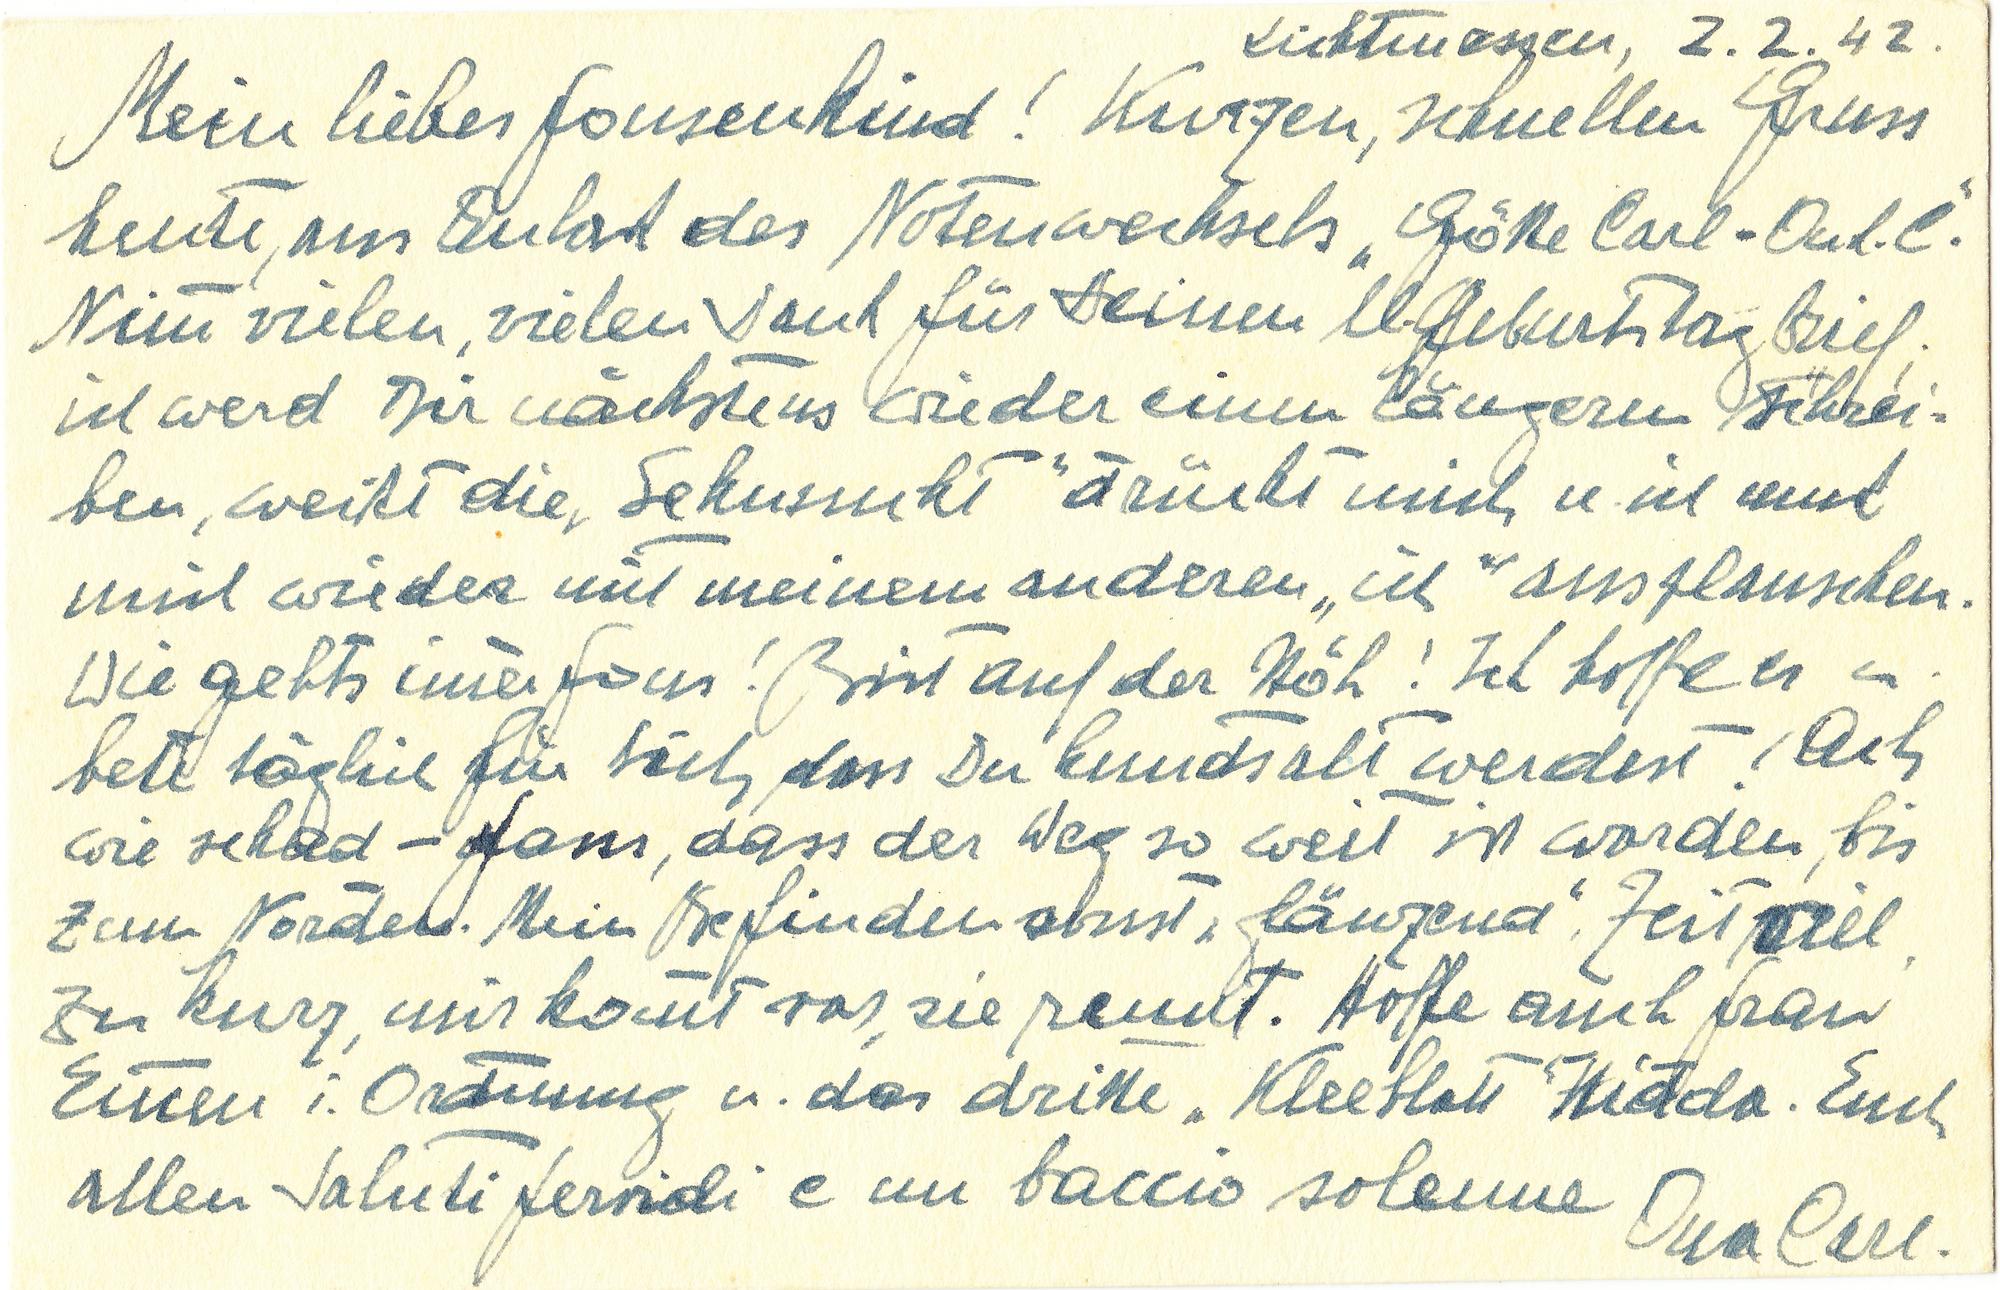 Lichtmessen, 2.2.42.
Mein liebes Fonsenkind! Kurzen, schnellen Gruss
heute, aus Anlass des Notenwechsels „Götte Carl - Onk. C."
Nim̄ vielen, vielen Dank für Deinen lb. Geburtstagbrief,
ich werd Dir nächstens wieder einen längern schrei-
ben, weißt die „Sehnsucht" drückt mich u. ich muss
mich wieder mit meinem anderen „ich" ausplauschen.
Wie gehts im̄er Fons! Bist auf der Höh! Ich hoffe es u.
bete täglich für Dich, dass Du hundsalt werdest! Ach
wie schad - Fons, dass der Weg so weit ist worden, bis
zum Norden. Mein Befinden sonst „glänzend". Zeit viel
zu kurz, mir kom̄t vor, sie rennt. Hoffe auch Frau
Em̄en i. Ordnung u. das dritte „Kleeblatt" Hidda. Euch
allen Saluti fervidi e un baccio solenne Carl.